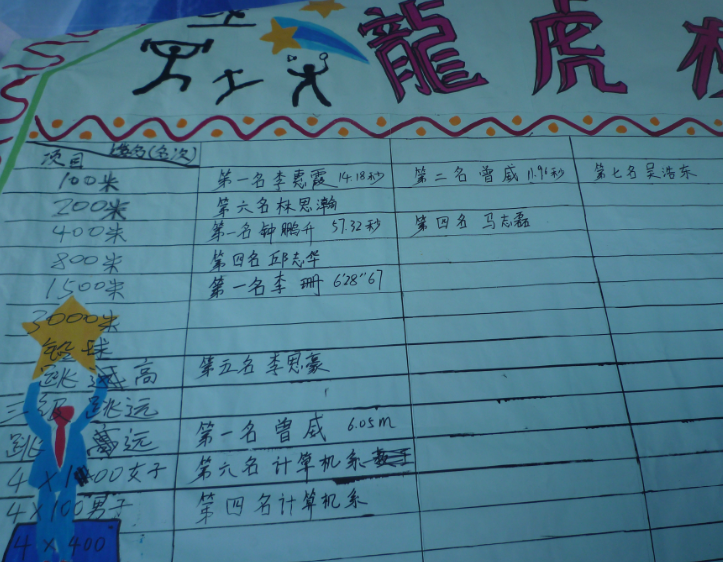 龍虎
项目 姓名(名次)
100米 第一名李惠霞 14.18秒 第二名曾威 11.96秒 第七名吴浩东
200米 第六名林思瀚
400米 第一名钟鹏升 57.32秒 第四名 马志磊
800米 第四名邱志华
1500米 第一名李珊 6'28"67
3000米
铅球
跳高 第五名李思豪
三级跳远
跳远 第一名曾威 6.05m
4×100女子 第六名计算机系
4×100男子 第四名计算机系
4×400